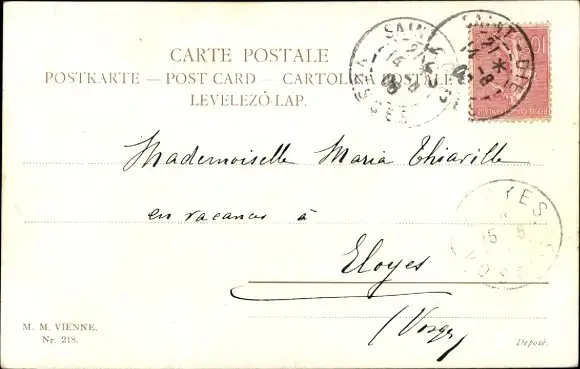 CARTE POSTALE
POSTKARTE — POST CARD — CARTOLINA POSTALE
LEVELEZŐ-LAP.
SAINT-DIÉ
10
Mademoiselle Maria Thiaville
en vacances à
Eloyes
(Vosges)
M. M. VIENNE.
Nr. 218.
Déposé.